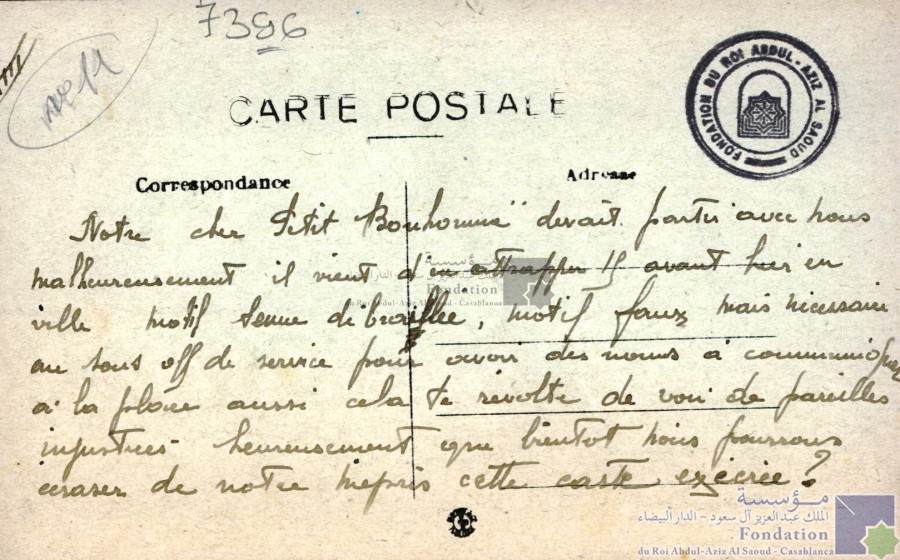 7386
CARTE POSTALE
FONDATION DU ROI ABDUL-AZIZ AL SAOUD
Correspondance
Adresse
Notre cher Petit Bonhomme" devait partir avec nous
malheureusement il vient d'en attrapper 15 avant hier en
ville motif tenue débraillée, motif faux mais nécessaire
au sous off de service pour avoir des noms à communiquer
à la place aussi cela te révolte de voir de pareilles
injustices heureusement que bientot nous pourrons
écraser de notre mépris cette caste exécrée?
مؤسسة
الملك عبد العزيز آل سعود - الدار البيضاء
Fondation
du Roi Abdul-Aziz Al Saoud - Casablanca
مؤسسة
الملك عبد العزيز آل سعود - الدار البيضاء
Fondation
du Roi Abdul-Aziz Al Saoud - Casablanca